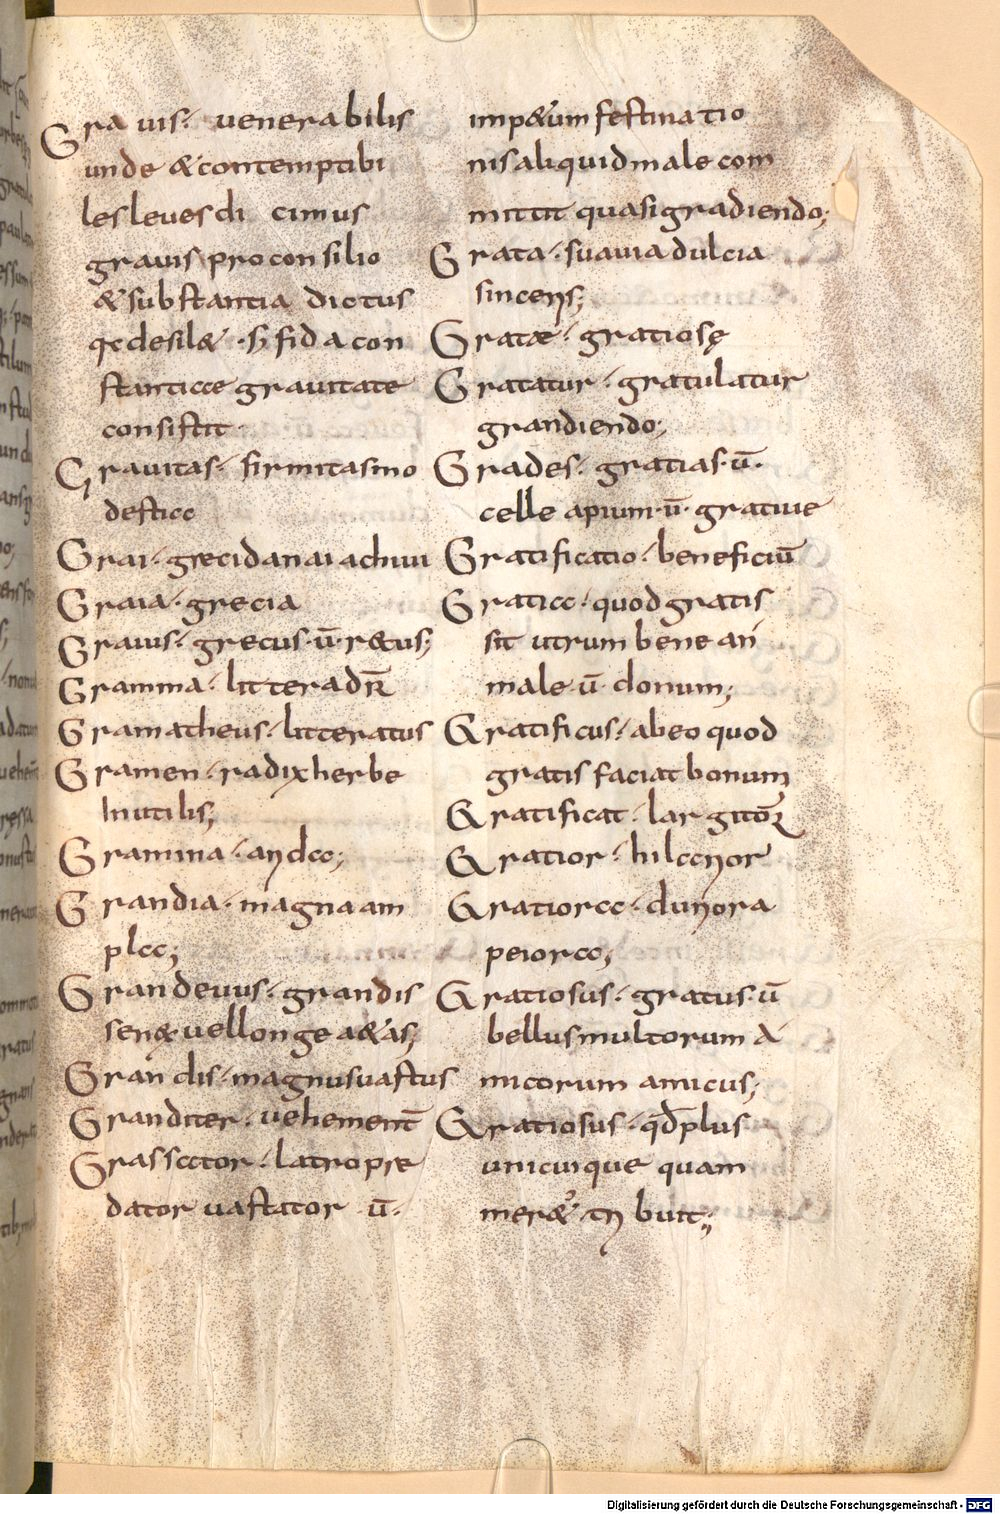 Gravis· venerabilis
unde & contemptibi
les leves dicimus
gravis pro consilio
& substantia dictus
sed fida con
stanticce gravitate
consistit·
Gravitas· firmitas mo
destice
Grai· greci danai achivi
Graia· grecia
Graius· grecus· ū· r&us;
Gramma· littera dr̄
Gramatheus· litteratus
Gramen· radix herbe
Inutilis;
Gramina·
Grandia· magna am
plcc;
Grandevus· grandis
senex vel longe a&as;
Grandis· magnus vastus
Granditer· vehement̄
Grasscctor· latro pre
dator vastator ū·
imp&um festinatio
nis aliquid male com
mittit quasi gradiendo;
Grata· suavia dulcia
Gratæ· gratiosę
Gratatur· gratulatur
grandiendo;
Grades· gratias· ū·
celle apium· ū· grative
Gratificatio· beneficiū
Graticc· quod gratis
sit utrum bene an
male· ū· donum;
Gratificus· ab eo quod
gratis faciat bonum
Gratificat· largitor
Gratior·
Gratiorcc·
peiorcc;
Gratiosus· gratus· ū
bellus multorum a
micorum amicus;
Gratiosus· qd plus
unicuique quam
mer& buit;
Digitalisierung gefördert durch die Deutsche Forschungsgemeinschaft - DFG